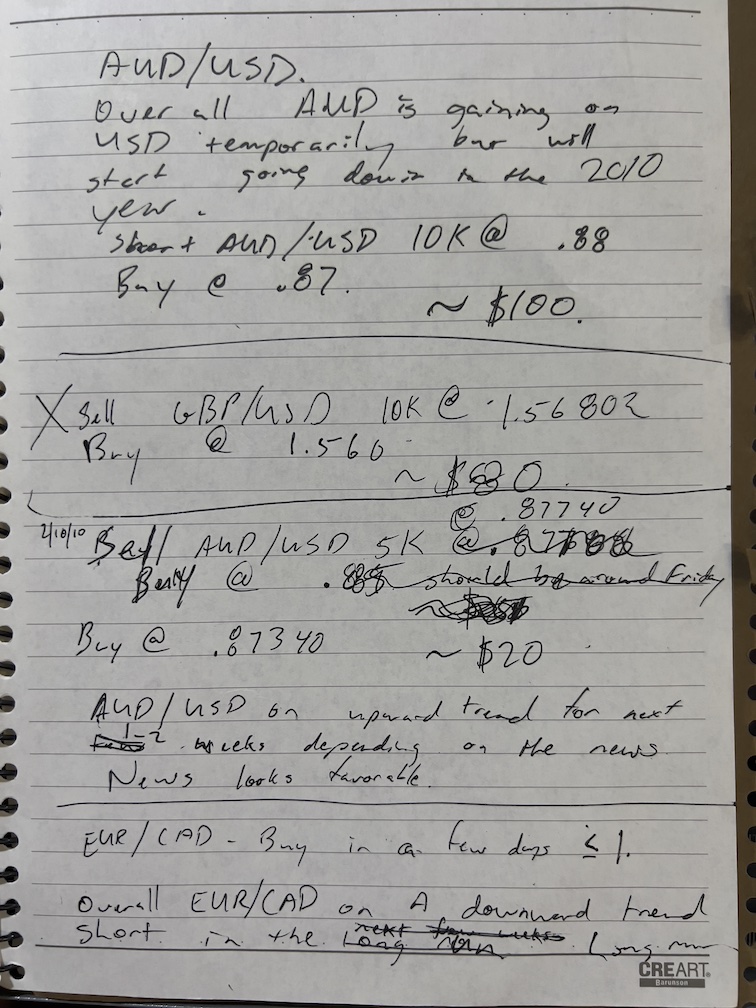 AUD/USD.
Over all AUD is gaining on
USD temporarily but will
start going down in the 2010
year.
short AUD/USD 10K @ .88
Buy @ .87.
~ $100.
X Sell GBP/USD 10K @ 1.56802
Buy @ 1.560
~ $80
@ .87740
2/10/10 Sell AUD/USD 5K @
Buy @ .885 should be around Friday
Buy @ .87340
~ $20
AUD/USD on upward trend for next
1-2 weeks depending on the news.
News looks favorable.
EUR/CAD - Buy in a few days ≤ 1.
Overall EUR/CAD on A downward trend
short in the next few weeks Long run
Long run
CREART
Barunson